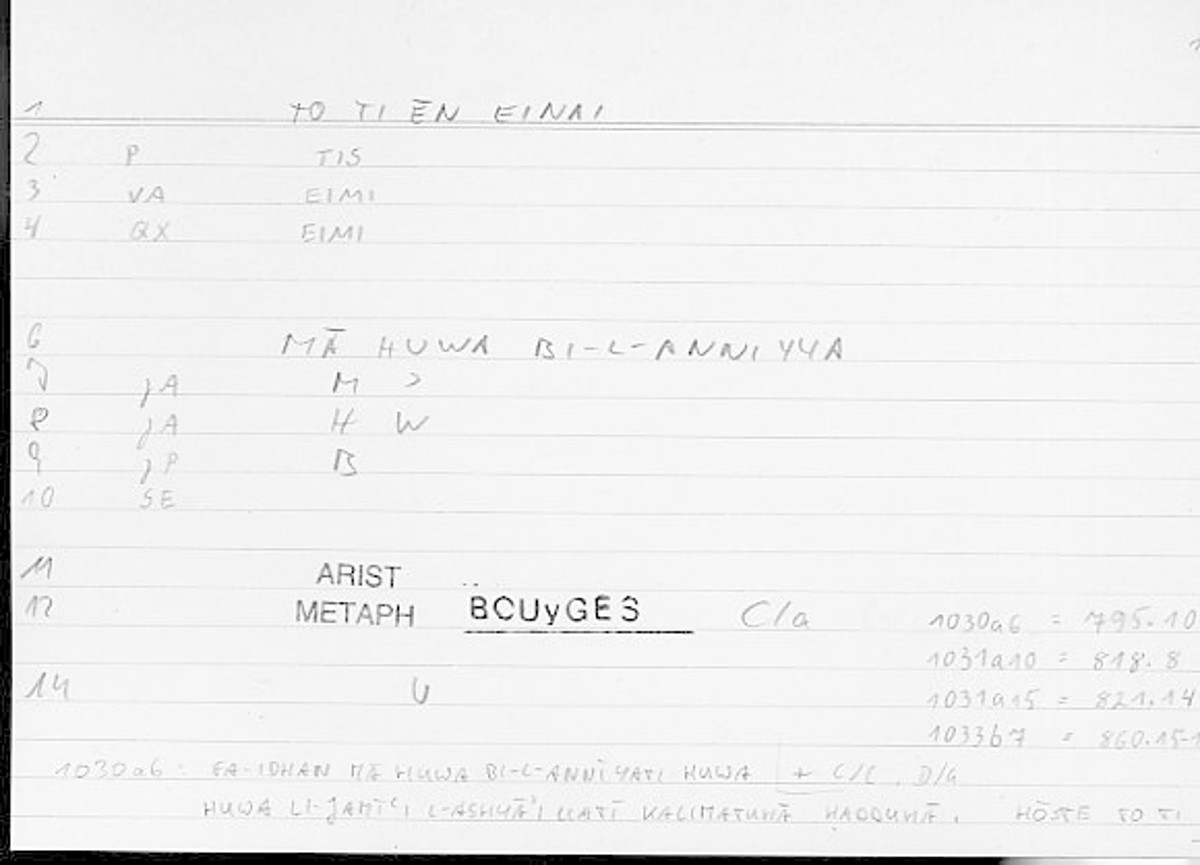 1 TO TI ĒN EINAI
2 P TIS
3 VA EIMI
4 QX EIMI
6 MĀ HUWA BI-L-ANNIYYA
7 jA M >
8 jA H W
9 jP B
10 SE
11 ARIST
12 METAPH BCUyGES C/a 1030a6 = 795.10
1031a10 = 818.8
14 U 1031a15 = 821.14
1033b7 = 860.15-1
1030a6: FA-IDHAN MĀ HUWA BI-L-ANNĪYATI HUWA + C/C, D/G
HUWA LI-JAMĪʿI L-ASHYĀʾI LLATĪ KALIMATUHĀ HADDUHĀ. HŌSTE TO TI